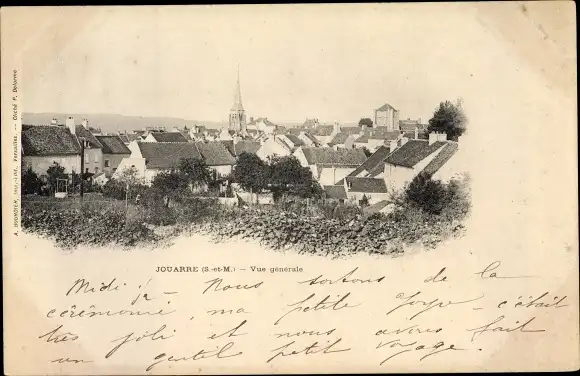 A. BOURDIER, Imp.-édit., Versailles. — Cliché P. Delorme
JOUARRE (S.-et-M.) — Vue générale
Midi ½ — Nous sortons de la
cérémonie, ma petite — c'était
très joli et nous avons fait
un gentil petit voyage.